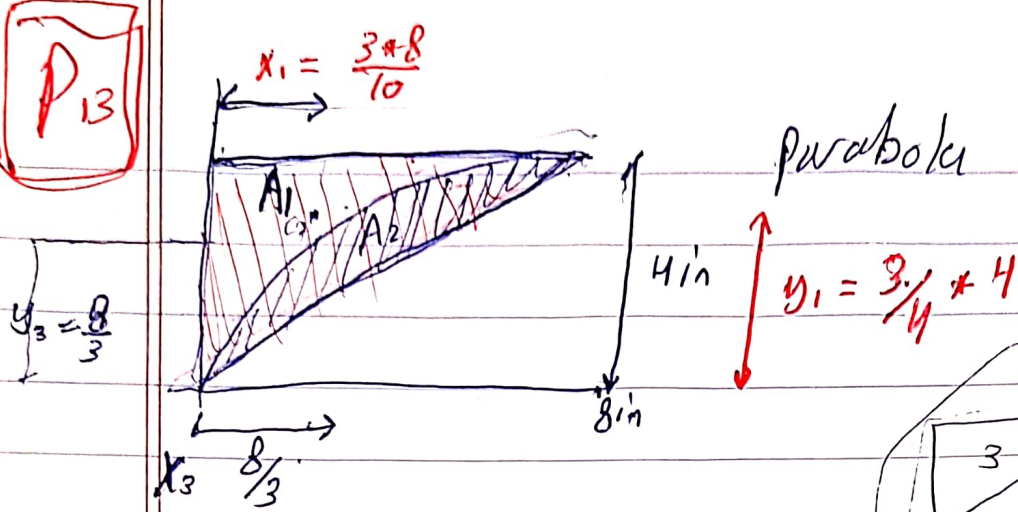 P13
x₁ = 3*8/10
parabola
A1
A2
4in
y₁ = 3/4 * 4
y₃ = 8/3
8in
x₃ 8/3
3